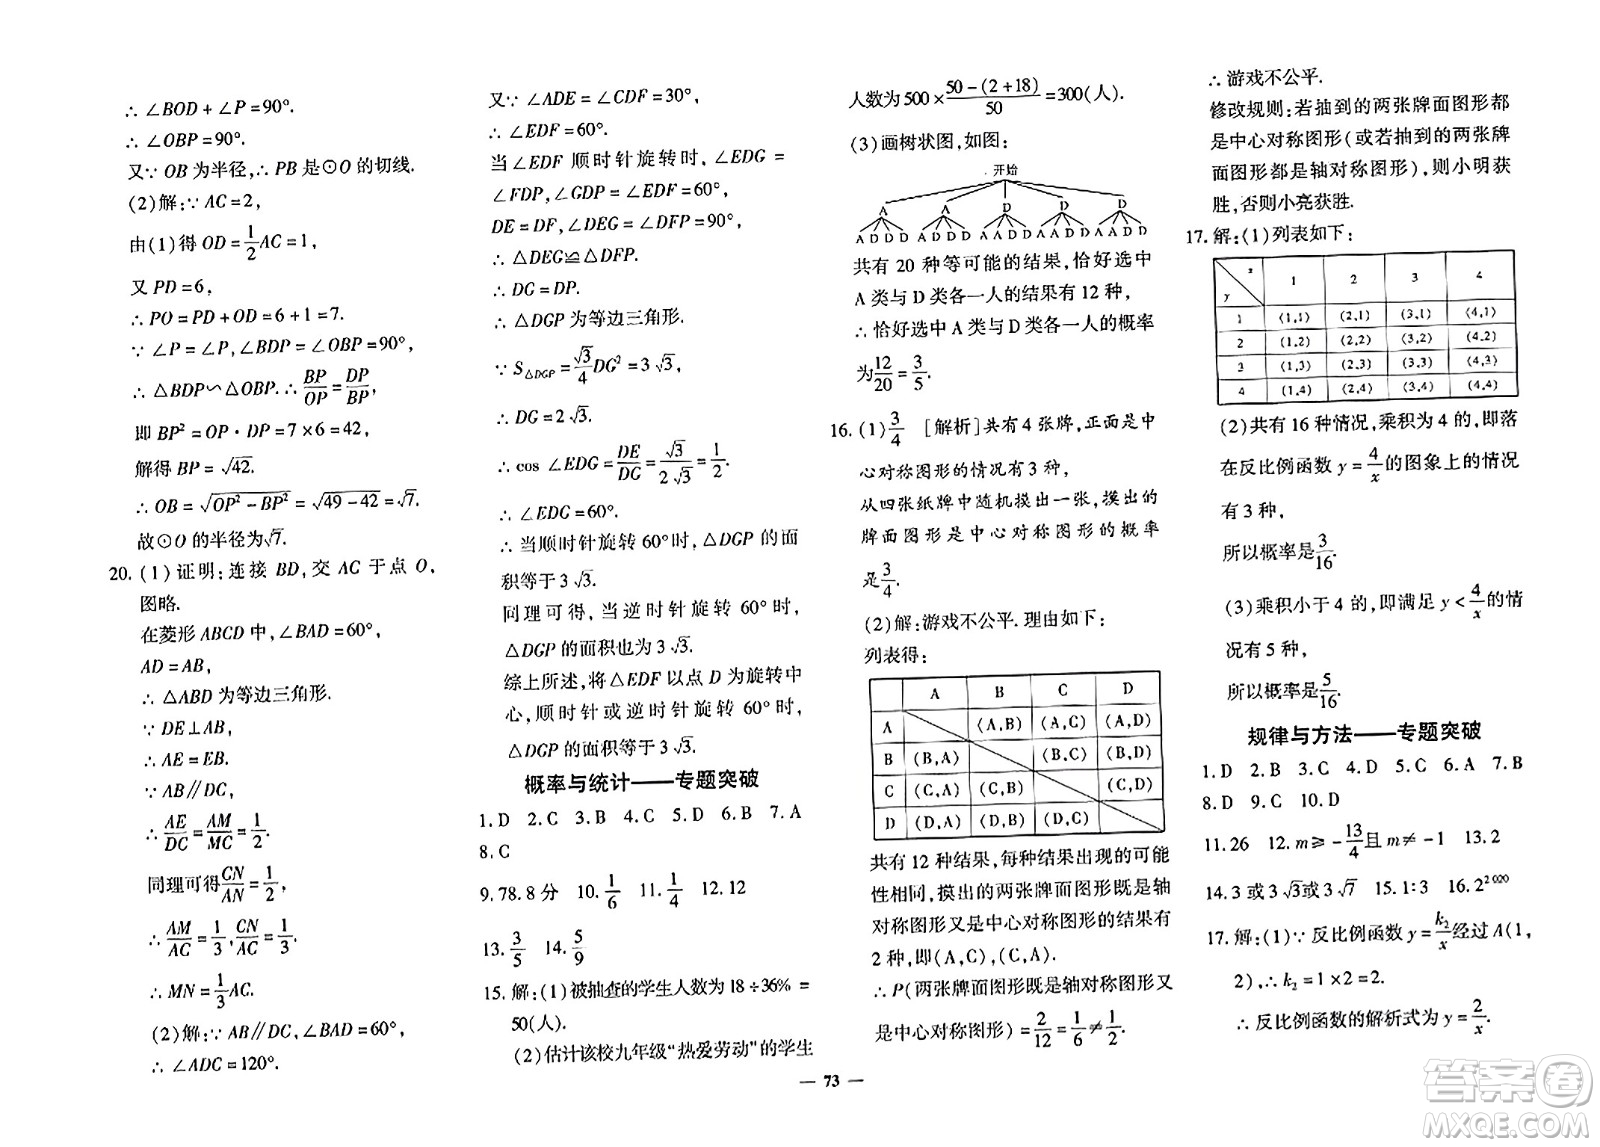 ∴ ∠BOD + ∠P = 90°.
∴ ∠OBP = 90°.
又∵ OB 为半径,∴ PB 是⊙O 的切线.
(2)解:∵ AC = 2,
由(1)得 OD = 1/2 AC = 1,
又 PD = 6,
∴ PO = PD + OD = 6 + 1 = 7.
∵ ∠P = ∠P,∠BDP = ∠OBP = 90°,
∴ △BDP∽△OBP. ∴ BP/OP = DP/BP,
即 BP² = OP · DP = 7 × 6 = 42,
解得 BP = √42.
∴ OB = √(OP² − BP²) = √(49 − 42) = √7.
故⊙O 的半径为√7.
20. (1) 证明:连接 BD,交 AC 于点 O,
图略.
在菱形 ABCD 中,∠BAD = 60°,
AD = AB,
∴ △ABD 为等边三角形.
∵ DE⊥AB,
∴ AE = EB.
∵ AB∥DC,
∴ AE/DC = AM/MC = 1/2.
同理可得 CN/AN = 1/2,
∴ AM/AC = 1/3, CN/AC = 1/3.
∴ MN = 1/3 AC.
(2)解:∵ AB∥DC,∠BAD = 60°,
∴ ∠ADC = 120°.
又∵ ∠ADE = ∠CDF = 30°,
∴ ∠EDF = 60°.
当∠EDF 顺时针旋转时,∠EDG =
∠FDP,∠GDP = ∠EDF = 60°,
DE = DF,∠DEG = ∠DFP = 90°,
∴ △DEG≌△DFP.
∴ DG = DP.
∴ △DGP 为等边三角形.
∵ S△DGP = √3/4 DG² = 3√3,
∴ DG = 2√3.
∴ cos ∠EDG = DE/DG = √3/2√3 = 1/2.
∴ ∠EDG = 60°.
∴ 当顺时针旋转 60°时,△DGP 的面
积等于 3√3.
同理可得,当逆时针旋转 60°时,
△DGP 的面积也为 3√3.
综上所述,将△EDF 以点 D 为旋转中
心,顺时针或逆时针旋转 60°时,
△DGP 的面积等于 3√3.
概率与统计——专题突破
1. D 2. C 3. B 4. C 5. D 6. B 7. A
8. C
9. 78. 8 分 10. 1/6 11. 1/4 12. 12
13. 3/5 14. 5/9
15. 解:(1) 被抽查的学生人数为 18 ÷ 36% =
50(人).
(2)估计该校九年级“热爱劳动”的学生
人数为 500 × (50 − (2 + 18))/50 = 300(人).
(3)画树状图,如图:
开始
A A D D D
A D D D A D D D A A D D A A D D A A D D
共有 20 种等可能的结果,恰好选中
A 类与 D 类各一人的结果有 12 种,
∴ 恰好选中 A 类与 D 类各一人的概率
为 12/20 = 3/5.
16. (1) 3/4 [解析]共有 4 张牌,正面是中
心对称图形的情况有 3 种,
从四张纸牌中随机摸出一张,摸出的
牌面图形是中心对称图形的概率
是 3/4.
(2)解:游戏不公平. 理由如下:
列表得:
A B C D
A (A,B) (A,C) (A,D)
B (B,A) (B,C) (B,D)
C (C,A) (C,B) (C,D)
D (D,A) (D,B) (D,C)
共有 12 种结果,每种结果出现的可能
性相同,摸出的两张牌面图形既是轴
对称图形又是中心对称图形的结果有
2 种,即(A,C),(C,A).
∴ P(两张牌面图形既是轴对称图形又
是中心对称图形) = 2/12 = 1/6 ≠ 1/2.
∴ 游戏不公平.
修改规则:若抽到的两张牌面图形都
是中心对称图形(或若抽到的两张牌
面图形都是轴对称图形),则小明获
胜,否则小亮获胜.
17. 解:(1)列表如下:
x 1 2 3 4
y
1 (1,1) (2,1) (3,1) (4,1)
2 (1,2) (2,2) (3,2) (4,2)
3 (1,3) (2,3) (3,3) (4,3)
4 (1,4) (2,4) (3,4) (4,4)
(2)共有 16 种情况,乘积为 4 的,即落
在反比例函数 y = 4/x 的图象上的情况
有 3 种,
所以概率是 3/16.
(3)乘积小于 4 的,即满足 y < 4/x 的情
况有 5 种,
所以概率是 5/16.
规律与方法——专题突破
1. D 2. B 3. C 4. D 5. C 6. A 7. B
8. D 9. C 10. D
11. 26 12. m ≥ −13/4 且 m ≠ −1 13. 2
14. 3 或 3√3 或 3√7 15. 1∶3 16. 2²⁰²⁰
17. 解:(1)∵ 反比例函数 y = k₂/x 经过 A(1,
2),∴ k₂ = 1 × 2 = 2.
∴ 反比例函数的解析式为 y = 2/x.
— 73 —
答案卷
MXQE.COM